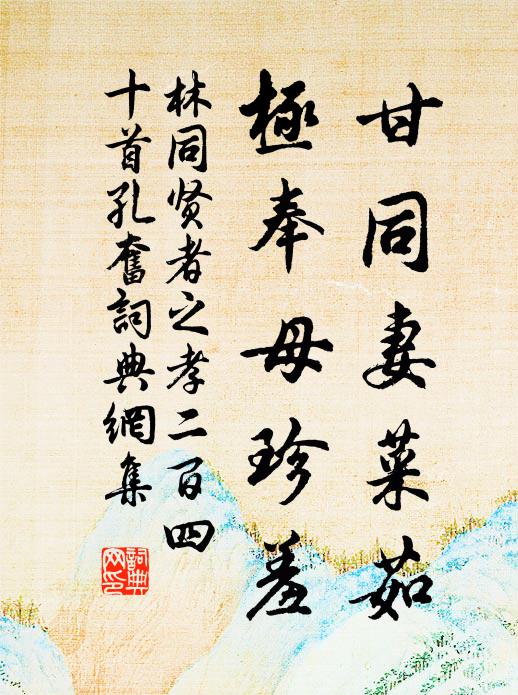 甘同妻菜茹
極奉母珍羞
林同贤者之孝二百四
十首孔奮詞典網集
詞典网印